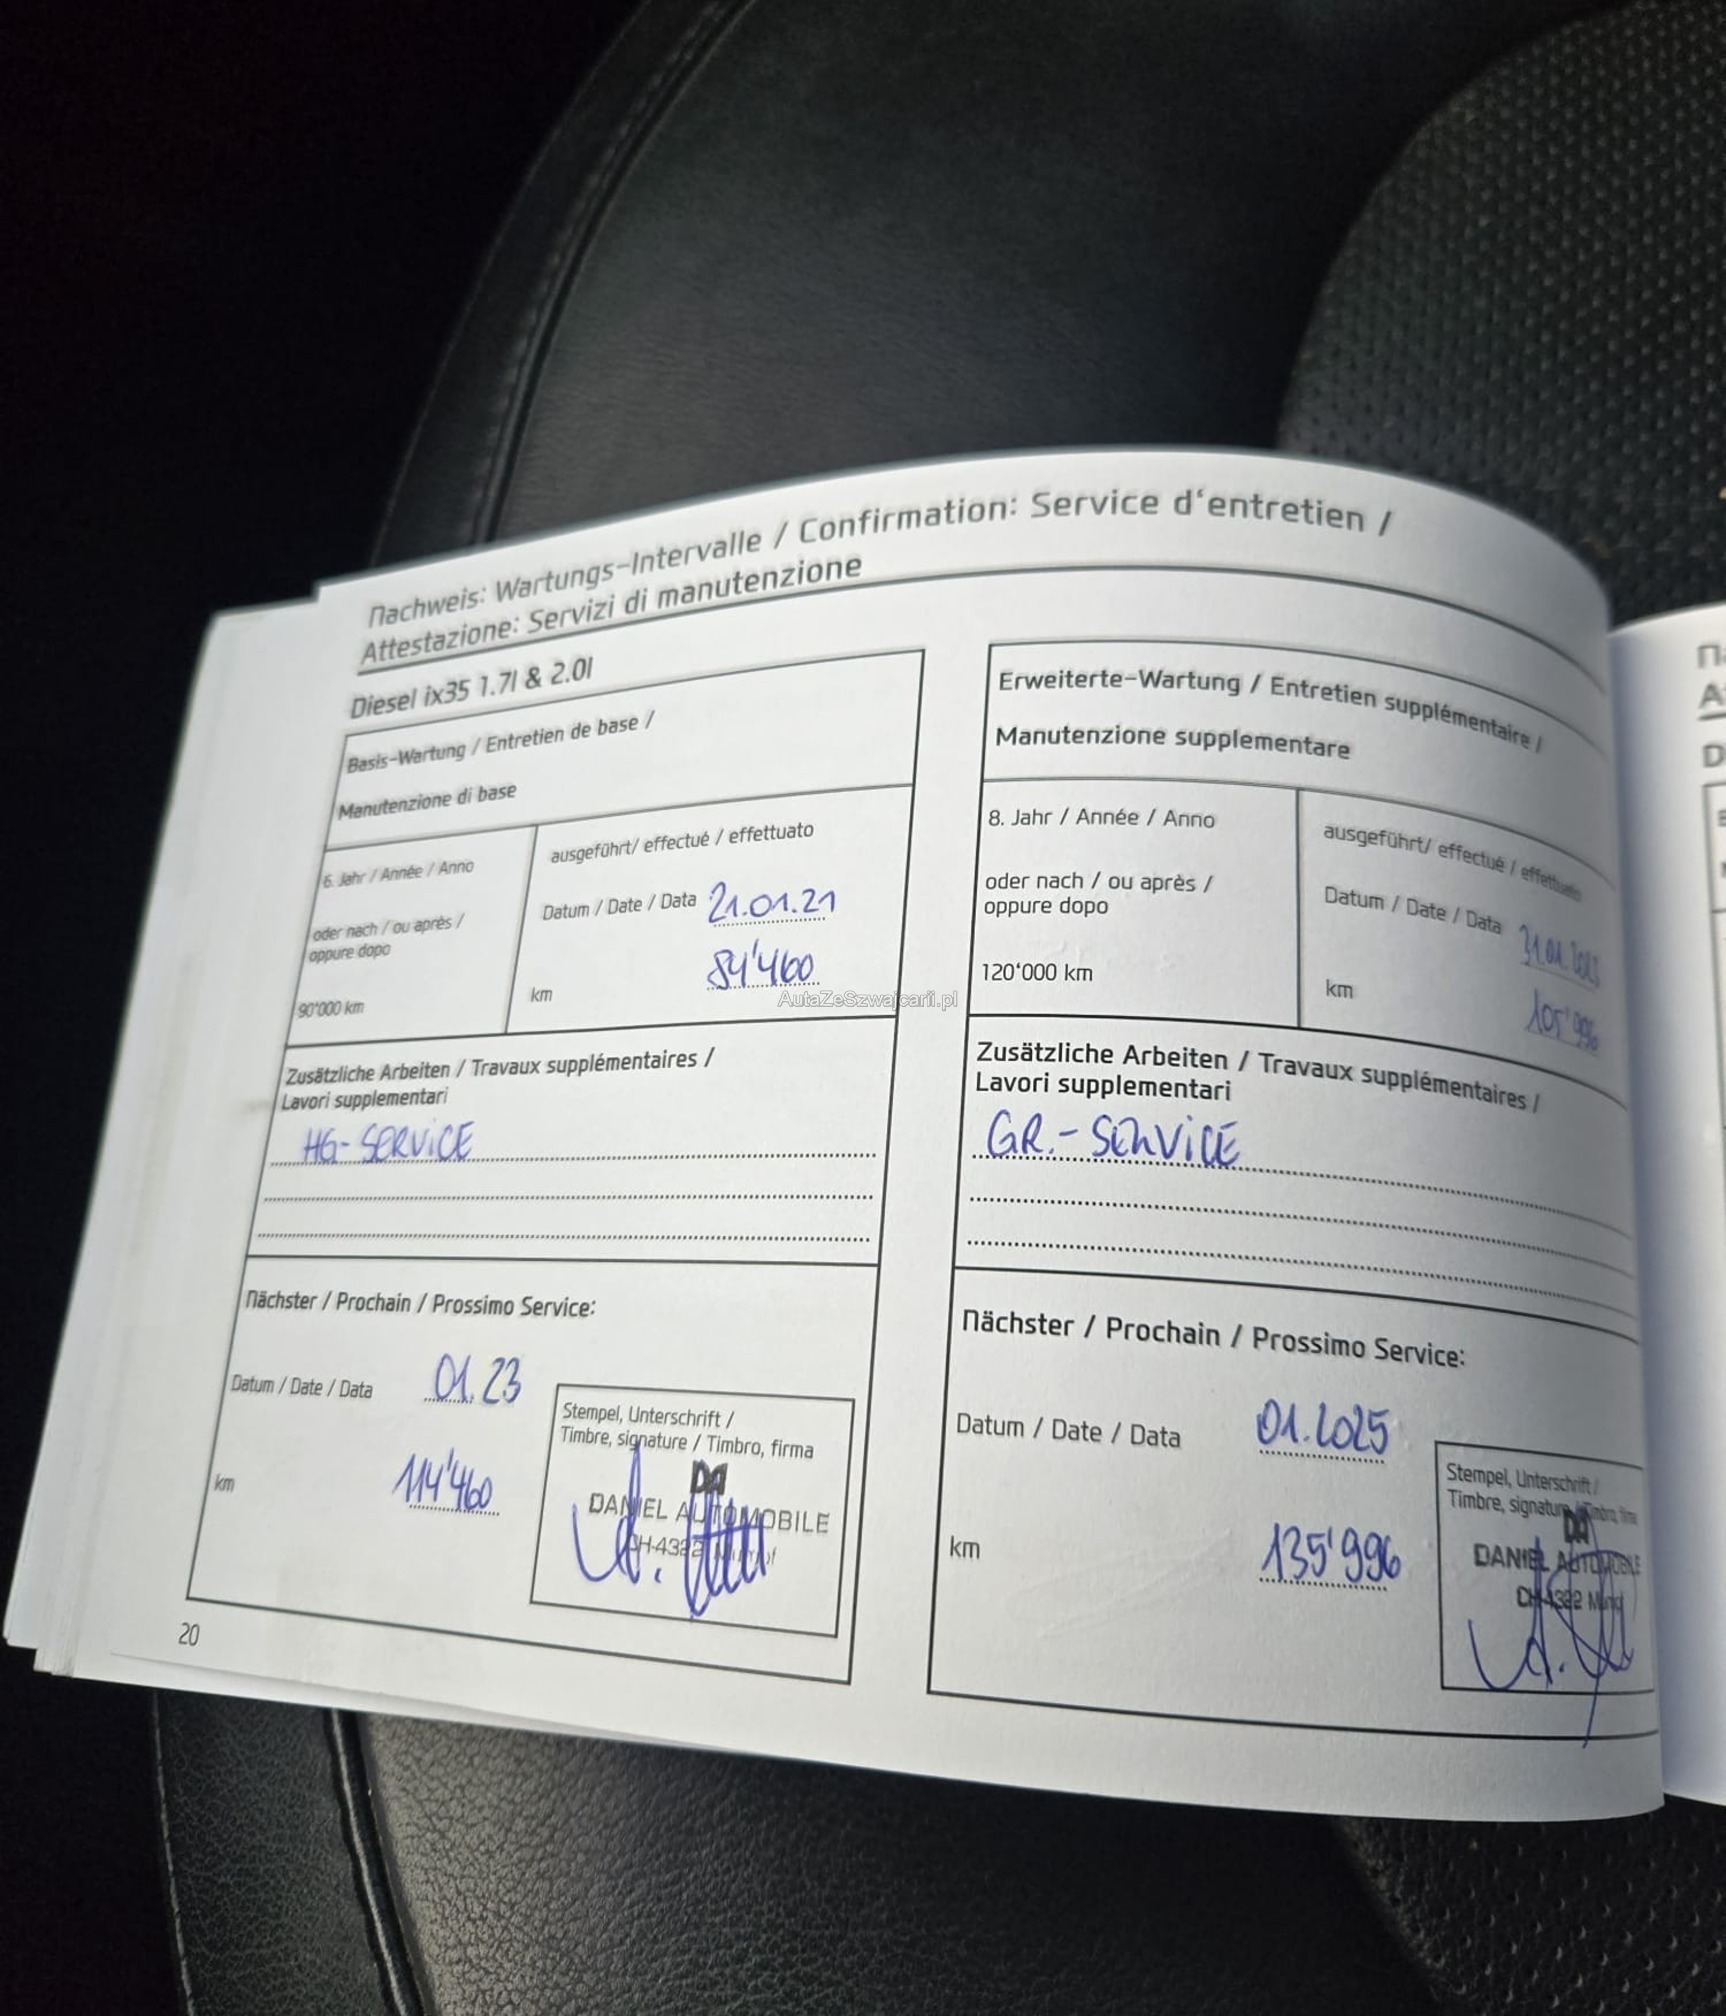 Nachweis: Wartungs-Intervalle / Confirmation: Service d'entretien /
Attestazione: Servizi di manutenzione
Diesel ix35 1.7l & 2.0l
Basis-Wartung / Entretien de base /
Manutenzione di base
6. Jahr / Année / Anno
oder nach / ou après /
oppure dopo
90'000 km
ausgeführt/ effectué / effettuato
Datum / Date / Data 21.01.21
km 84'460
Zusätzliche Arbeiten / Travaux supplémentaires /
Lavori supplementari
HG-SERVICE
Nächster / Prochain / Prossimo Service:
Datum / Date / Data 01.23
km 114'460
Stempel, Unterschrift /
Timbre, signature / Timbro, firma
DA
DANIEL AUTOMOBILE
CH-4322 Mumpf
20
Erweiterte-Wartung / Entretien supplémentaire /
Manutenzione supplementare
8. Jahr / Année / Anno
oder nach / ou après /
oppure dopo
120'000 km
ausgeführt/ effectué / effettuato
Datum / Date / Data 31.01.2023
km 105'996
Zusätzliche Arbeiten / Travaux supplémentaires /
Lavori supplementari
GR.-SERVICE
Nächster / Prochain / Prossimo Service:
Datum / Date / Data 01.2025
km 135'996
Stempel, Unterschrift /
Timbre, signature / Timbro, firma
DA
DANIEL AUTOMOBILE
CH-4322 Mumpf
AutaZeSzwajcarii.pl